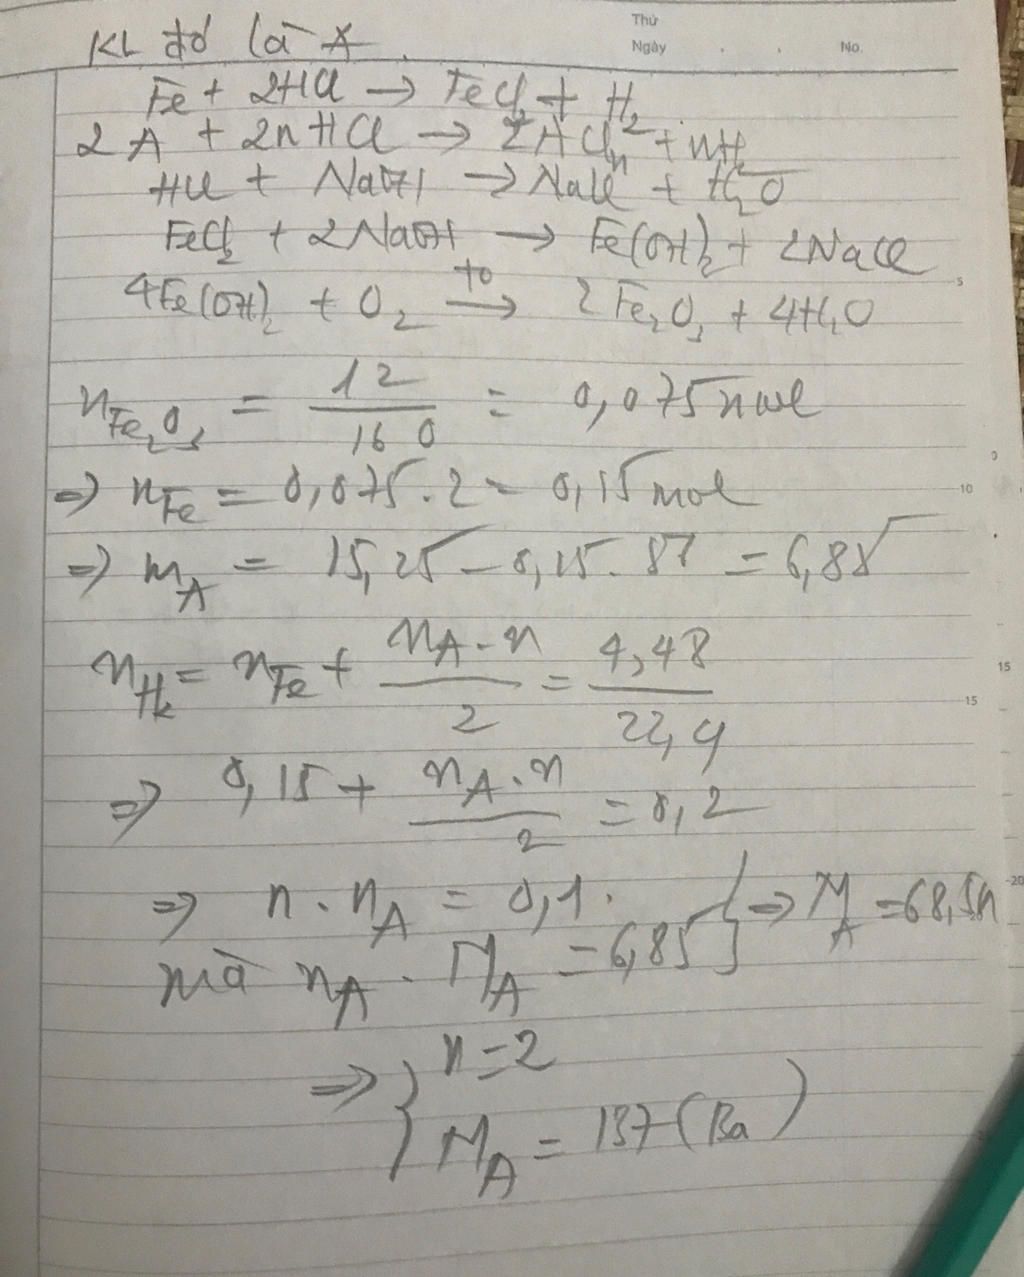 Thứ
Ngày . . No.
KL đó là A.
Fe + 2HCl → FeCl2 + H2
2A + 2nHCl → 2ACln + nH2
HCl + NaOH → NaCl + H2O
FeCl2 + 2NaOH → Fe(OH)2 + 2NaCl
4Fe(OH)2 + O2 →(to) 2Fe2O3 + 4H2O
5
nFe2O3 = 12/160 = 0,075 mol
⇒ nFe = 0,075.2 = 0,15 mol
10
⇒ mA = 15,25 - 0,15.57 = 6,85
nH2 = nFe + nA.n/2 = 4,48/22,4
15
15
⇒ 0,15 + nA.n/2 = 0,2
⇒ n.nA = 0,1.
20
mà nA.MA = 6,85 } ⇒ MA = 68,5n
⇒ { n=2
MA = 137 (Ba)